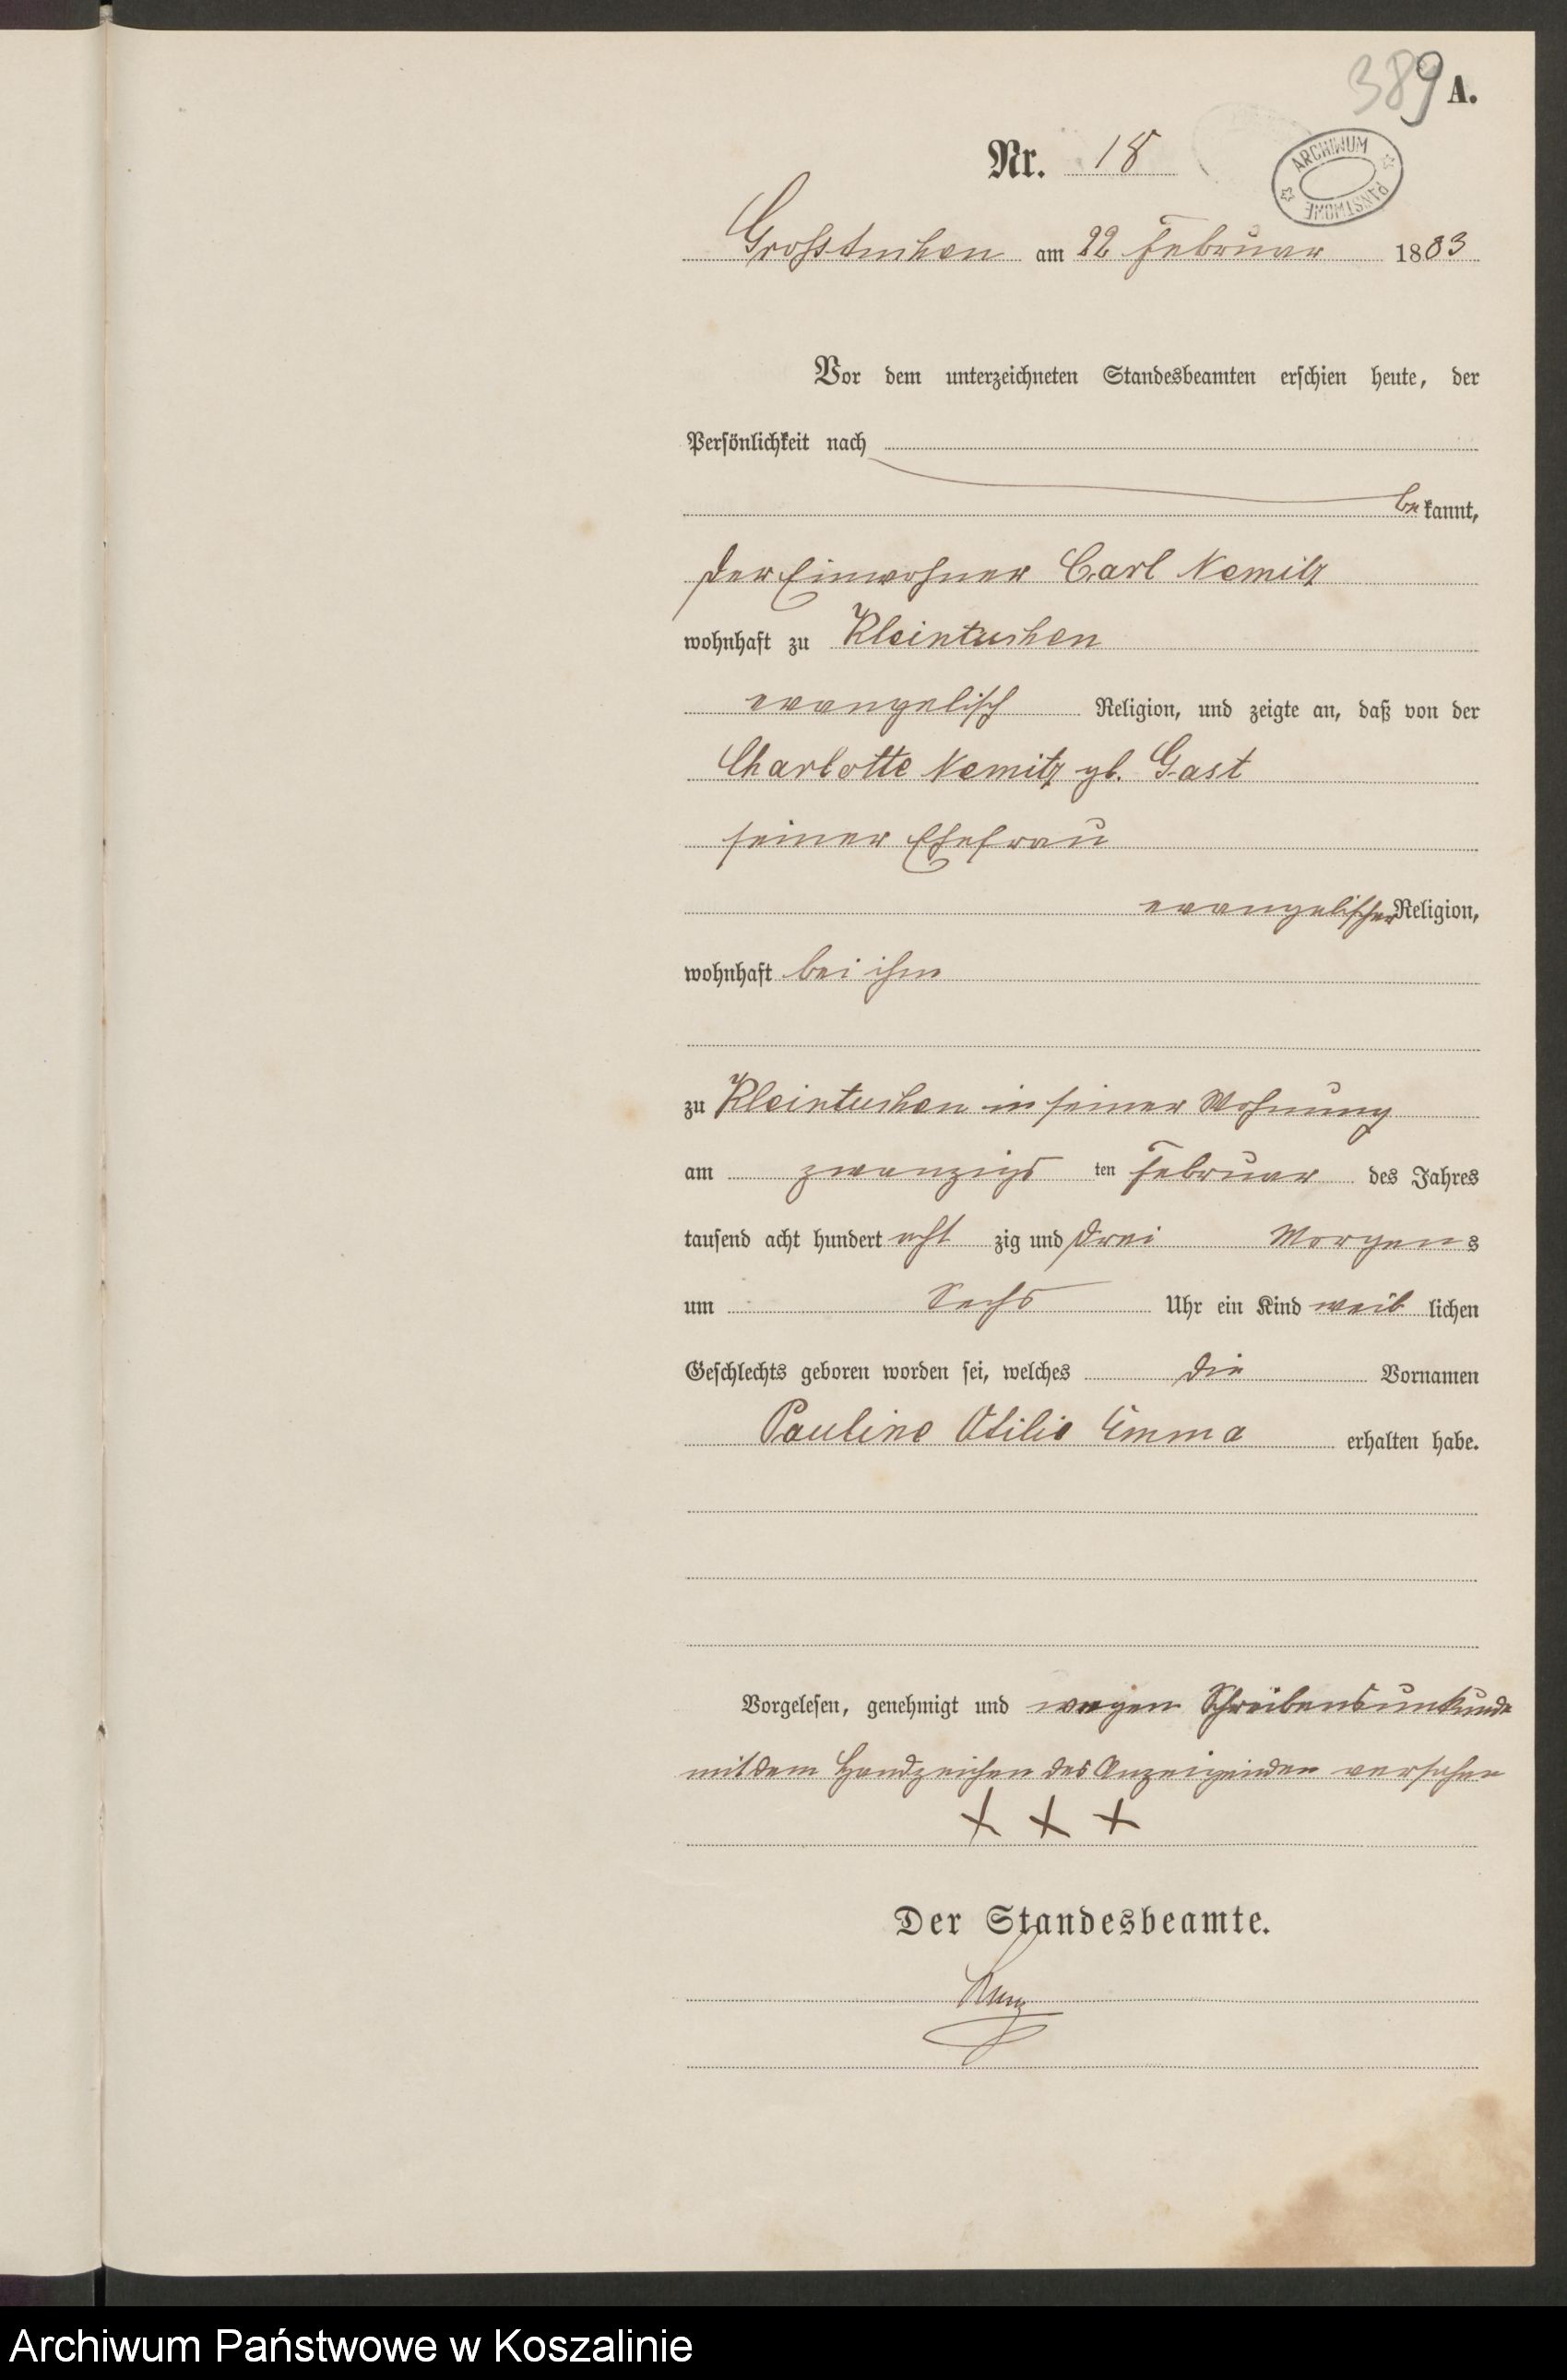 389 A.
Nr. 18
ARCHIWUM PAŃSTWOWE
Grosstuchen am 22 Februar 1883
Vor dem unterzeichneten Standesbeamten erschien heute, der
Persönlichkeit nach
bekannt,
der Einwohner Carl Nemitz
wohnhaft zu Kleintuchen
evangelisch Religion, und zeigte an, daß von der
Charlotte Nemitz gb. Gast
seiner Ehefrau
evangelischer Religion,
wohnhaft bei ihm
zu Kleintuchen in seiner Wohnung
am zwanzigs ten Februar des Jahres
tausend acht hundert acht zig und drei Morgens
um Sechs Uhr ein Kind weib lichen
Geschlechts geboren worden sei, welches die Vornamen
Pauline Otilie Emma erhalten habe.
Vorgelesen, genehmigt und wegen Schreibensunkunde
mit dem Handzeichen des Anzeigenden versehen
X X X
Der Standesbeamte.
Archiwum Państwowe w Koszalinie